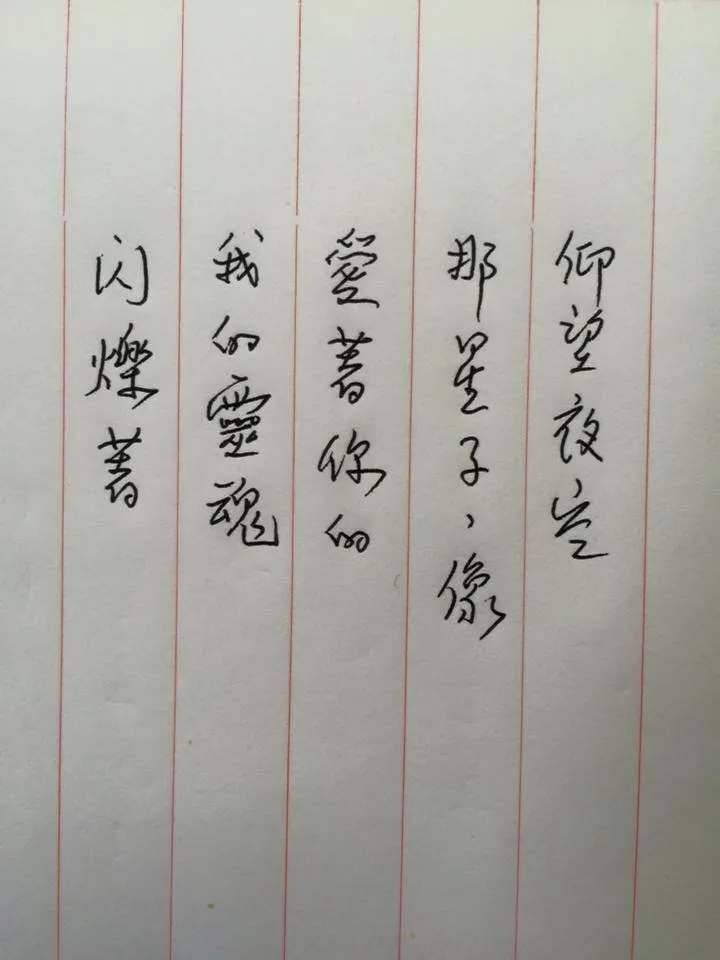 仰望夜空
那星子、像
愛著你的
我的靈魂
闪爍著